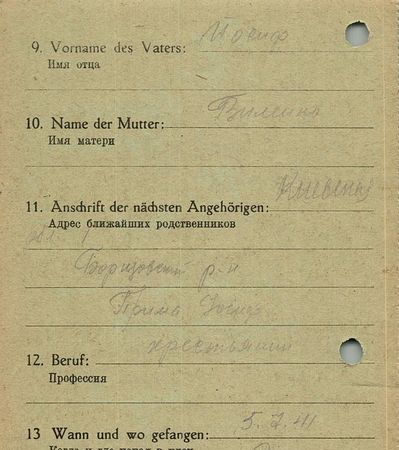 9. Vorname des Vaters: Иосиф
Имя отца
10. Name der Mutter:
Имя матери
11. Anschrift der nächsten Angehörigen:
Адрес ближайших родственников
р-н
Прима Иосиф
крестьянин
12. Beruf:
Профессия
5.7.41
13 Wann und wo gefangen: